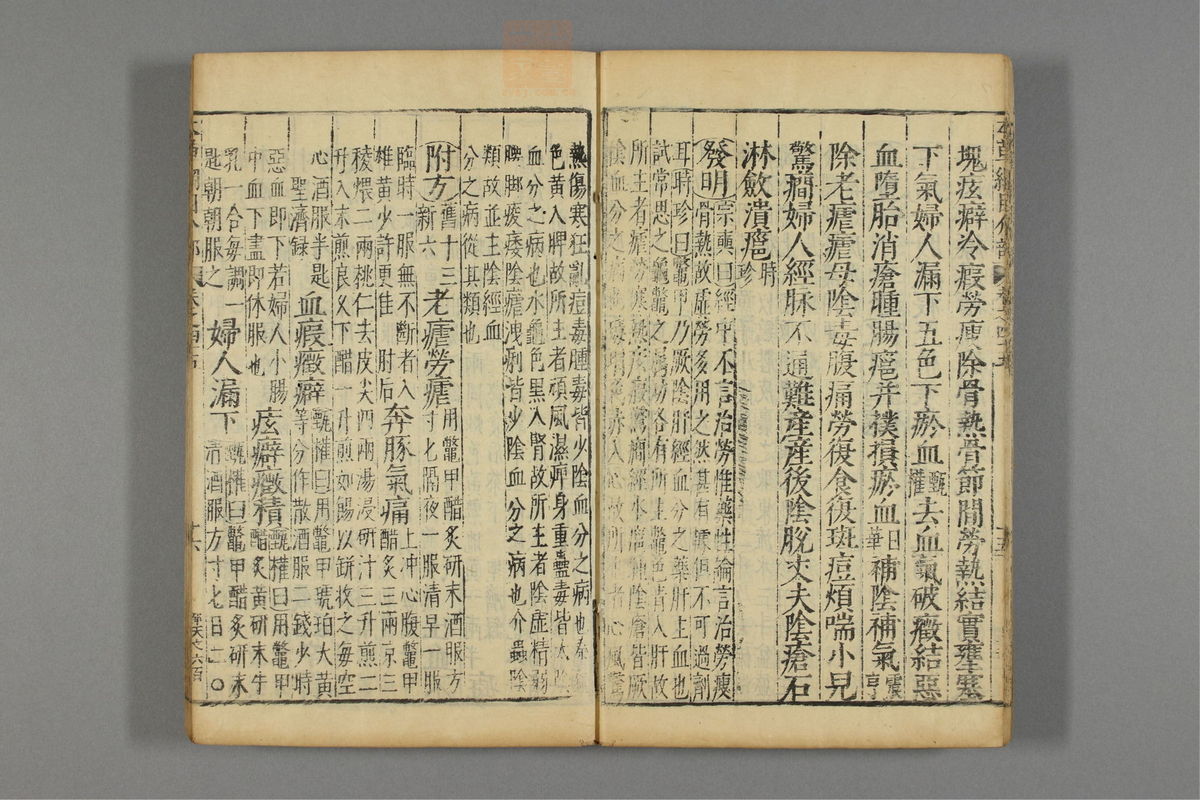 塊痃癖冷瘕勞瘦除骨熱骨節間勞熱結實壅塞
下氣婦人漏下五色下瘀血甄權去血氣破癥結惡
血墮胎消瘡腫腸癰并撲損瘀血日華補陰補氣震亨
除老瘧瘧母陰毒腹痛勞復食復斑痘煩喘小兒
驚癇婦人經脉不通難產產後陰脫丈夫陰瘡石
淋斂潰癰時珍
發明宗奭曰經中不言治勞惟藥性論言治勞瘦
骨熱故虛勞多用之然甚有據但不可過劑
耳時珍曰鼈甲乃厥陰肝經血分之藥肝主血也
試常思之龜鼈之屬功各有所主鼈色青入肝故
所主者瘧勞寒熱痃瘕驚癇經水癰腫陰瘡皆厥
陰血分之病也 色赤入心故所主者心風驚
熱傷寒狂亂痘毒腫毒皆少陰血分之病也秦
色黃入脾故所主者頑風濕痺身重蠱毒皆
血分之病也水龜色黑入腎故所主者陰虛精弱
腰脚痠痿陰瘧洩痢皆少陰血分之病也介蟲陰
類故並主陰經血
分之病從其類也
附方舊十三新六老瘧勞瘧用鼈甲醋炙研末酒服方
寸匕隔夜一服清早一服
臨時一服無不斷者入
雄黃少許更佳 肘后奔豚氣痛上冲心腹鼈甲
醋炙三兩京三
稜煨二兩桃仁去皮尖四兩湯浸研汁三升煎二
升入末煎良久下醋一升煎如餳以缾收之每空
心酒服半匙
聖濟録血瘕癥癖甄權曰用鼈甲琥珀大黃
等分作散酒服二錢少時
惡血即下若婦人小腸
中血下盡即休服也痃癖癥積甄權曰用鼈甲
醋炙黃研末牛
乳一合每調一
匙朝朝服之婦人漏下甄權曰鼈甲醋炙研末
清酒服方寸匕日二〇